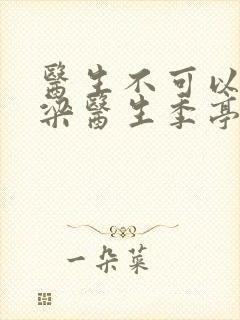 醫生不可以
梁醫生季亭
一朵菜